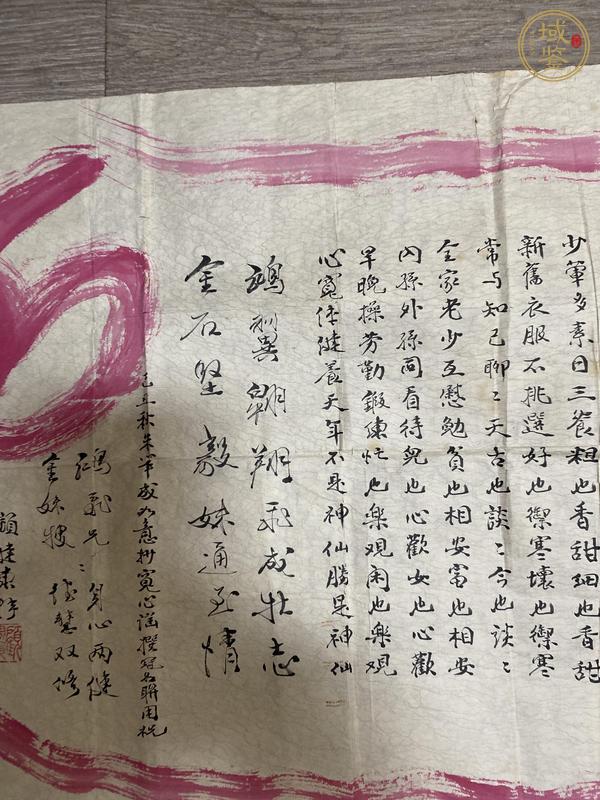 少葷多素日三餐粗也香甜細也香甜
新舊衣服不挑選好也禦寒壞也禦寒
常与知己聊聊天古也談談今也談談
全家老少互慰勉貧也相安富也相安
內孫外孫同看待兒也心歡女也心歡
早晚操勞勤鍛煉忙也樂觀闲也樂觀
心寬体健養天年不是神仙勝是神仙
鴻翼翱翔飛成壯志
金石堅毅妹通至情
乙丑秋朱筆成如意抄寬心謠撰冠名聯用祝
鴻飛兄身心兩健
金妹雙修
域鉴